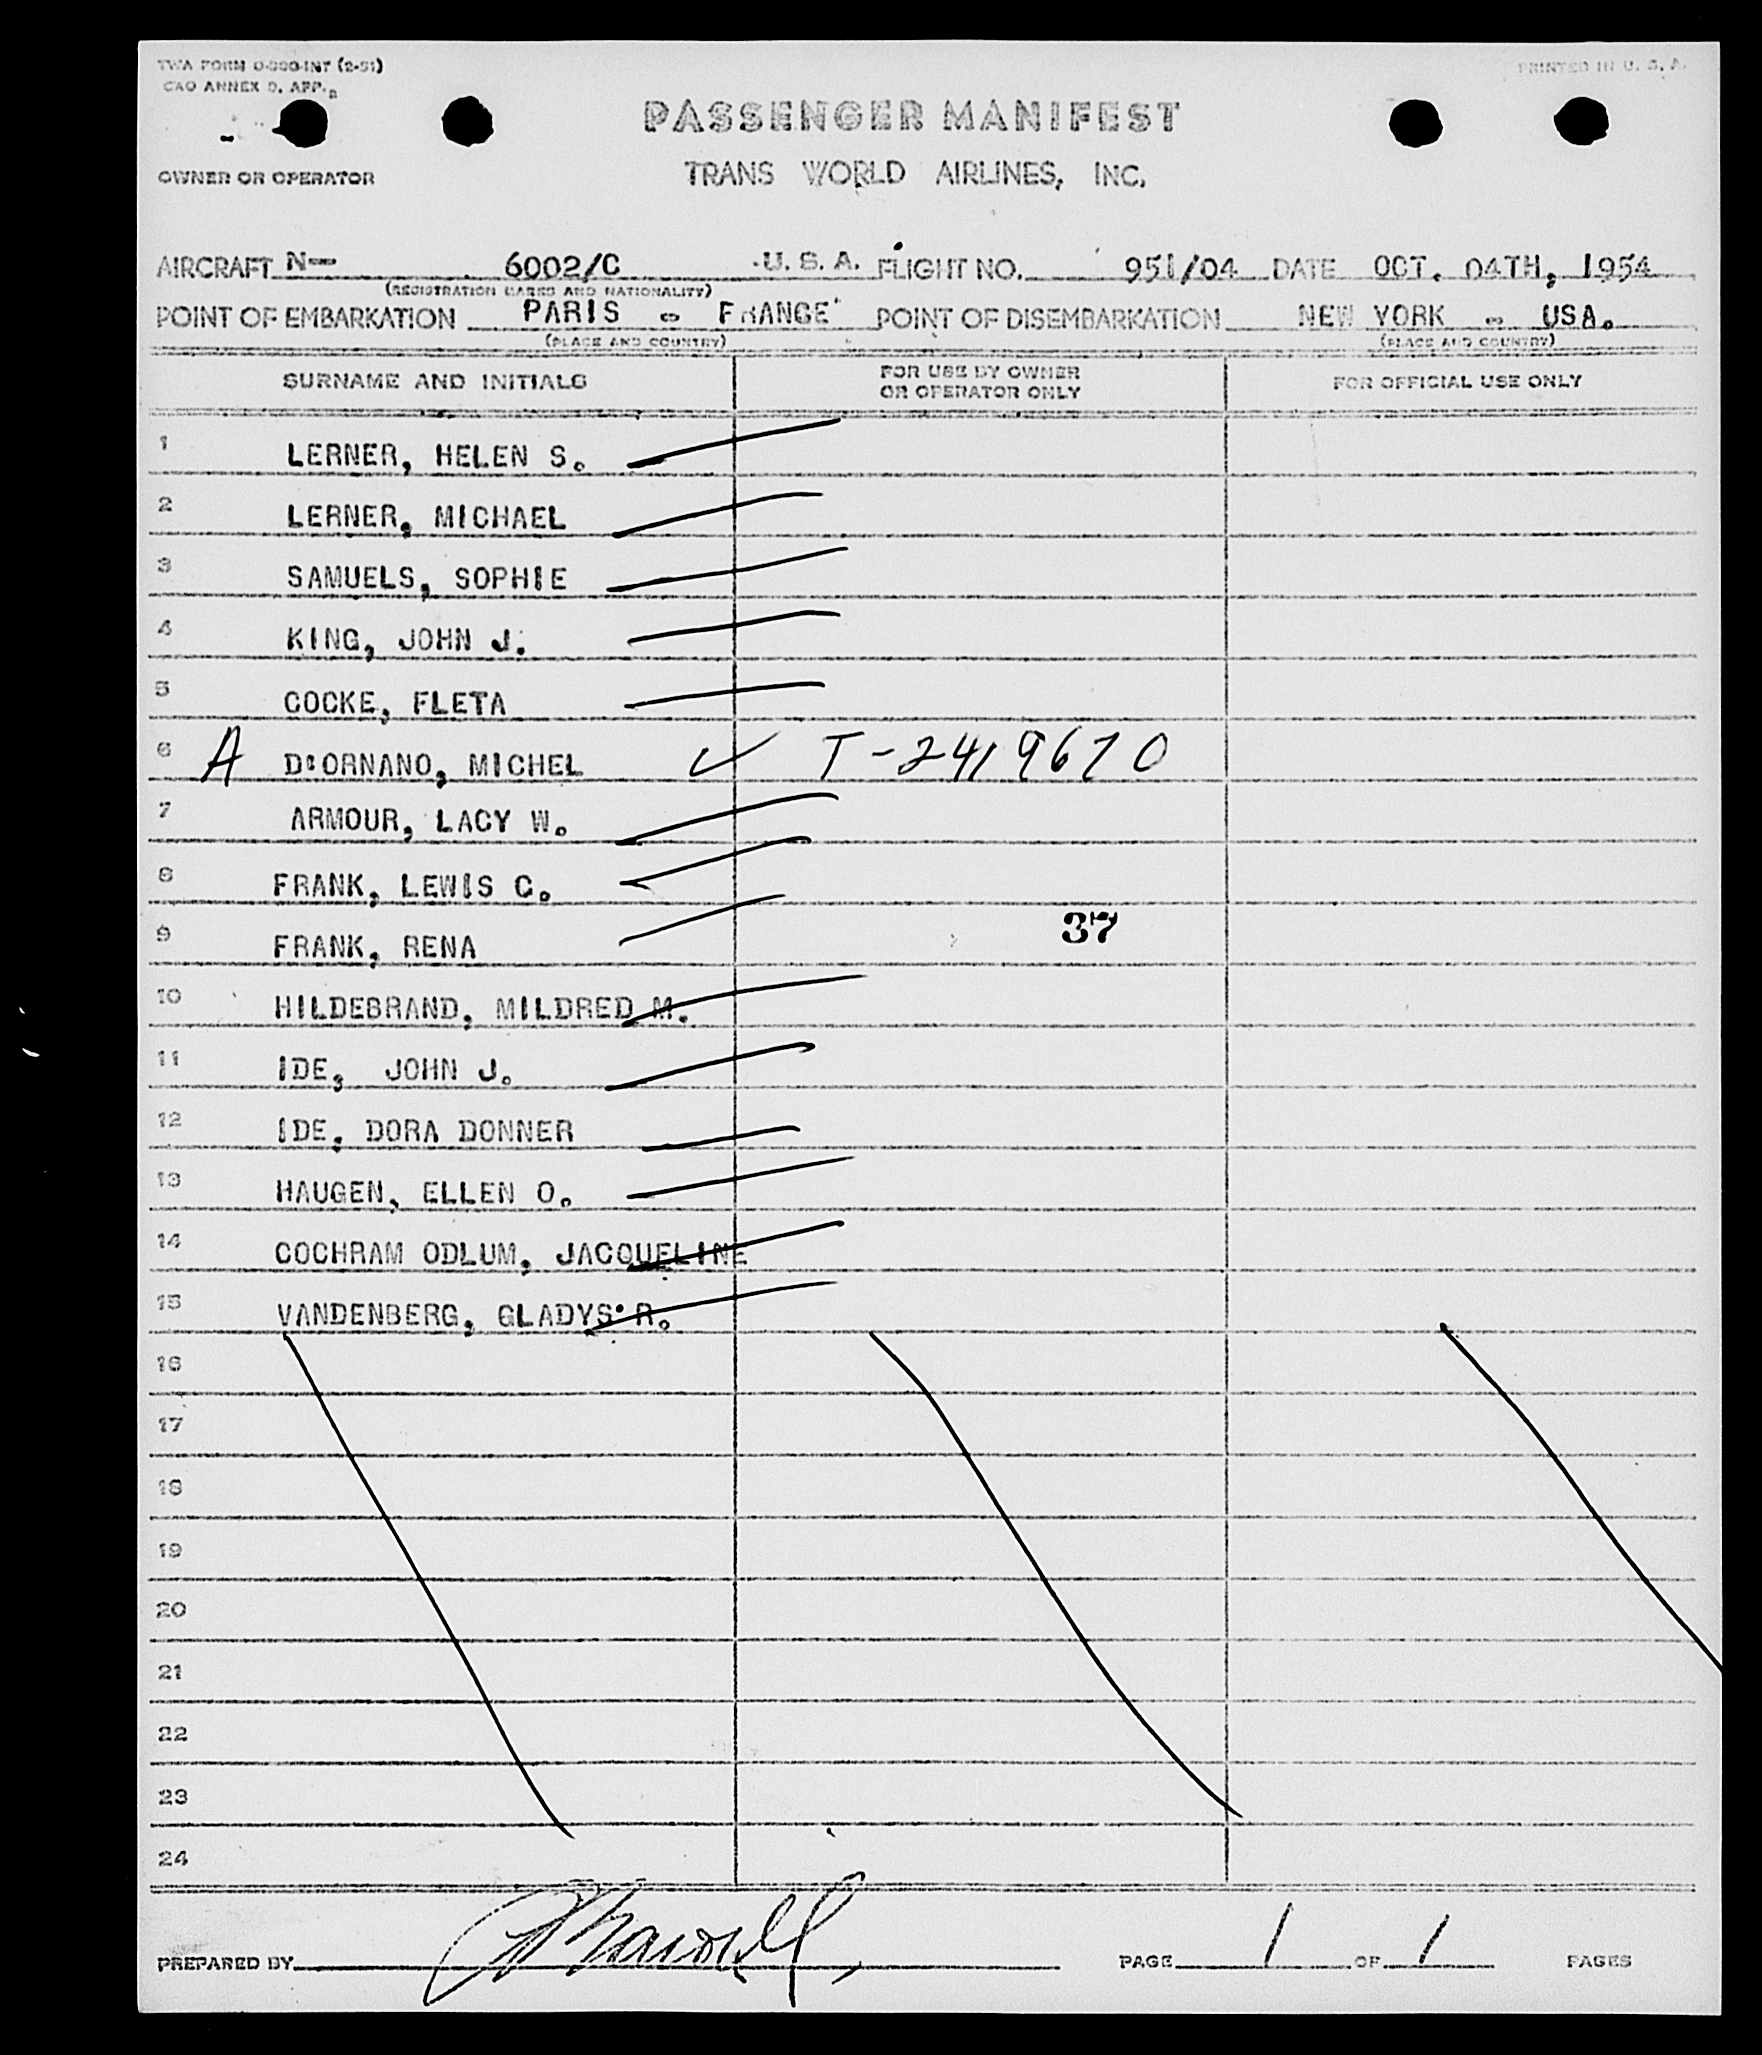 TWA FORM O-300-INT (2-51)
PRINTED IN U. S. A.
CAO ANNEX 9, APP.
PASSENGER MANIFEST
OWNER OR OPERATOR TRANS WORLD AIRLINES, INC.
AIRCRAFT N- 6002/C U. S. A. FLIGHT NO. 951/04 DATE OCT. 04TH, 1954
(REGISTRATION MARKS AND NATIONALITY)
POINT OF EMBARKATION PARIS - FRANCE POINT OF DISEMBARKATION NEW YORK - USA.
(PLACE AND COUNTRY) (PLACE AND COUNTRY)
SURNAME AND INITIALS
FOR USE BY OWNER
OR OPERATOR ONLY
FOR OFFICIAL USE ONLY
1 LERNER, HELEN S.
2 LERNER, MICHAEL
3 SAMUELS, SOPHIE
4 KING, JOHN J.
5 COCKE, FLETA
6 A D'ORNANO, MICHEL ✓ T-2419670
7 ARMOUR, LACY W.
8 FRANK, LEWIS C.
9 FRANK, RENA 37
10 HILDEBRAND, MILDRED M.
11 IDE, JOHN J.
12 IDE, DORA DONNER
13 HAUGEN, ELLEN O.
14 COCHRAM ODLUM, JACQUELINE
15 VANDENBERG, GLADYS R.
16
17
18
19
20
21
22
23
24
PREPARED BY PAGE 1 OF 1 PAGES